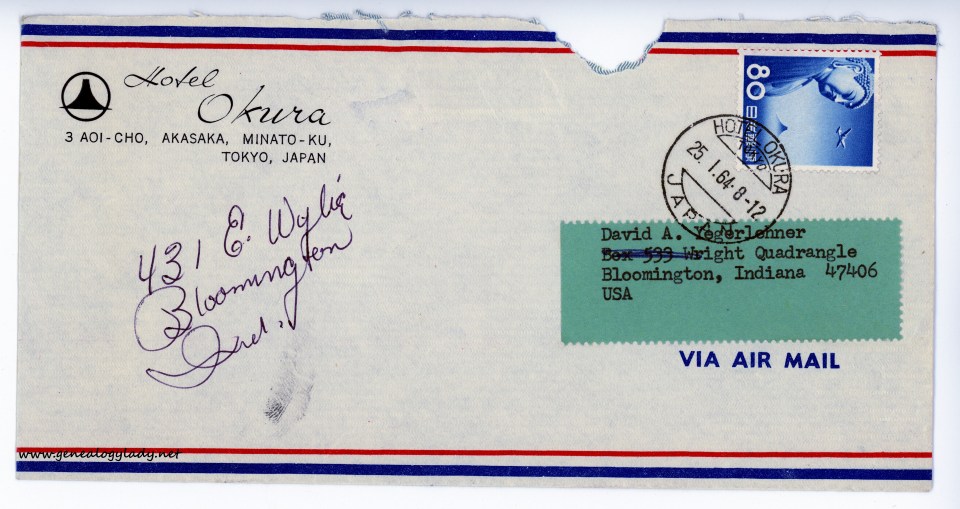 Hotel
Okura
3 AOI-CHO, AKASAKA, MINATO-KU,
TOKYO, JAPAN
80
日本郵便
HOTEL OKURA
TOKYO
25.I.64.8-12
JAPAN
David A. Yegerlehner
Box 533 Wright Quadrangle
Bloomington, Indiana 47406
USA
VIA AIR MAIL
431 E. Wylie
Bloomington
Ind.
www.genealogylady.net